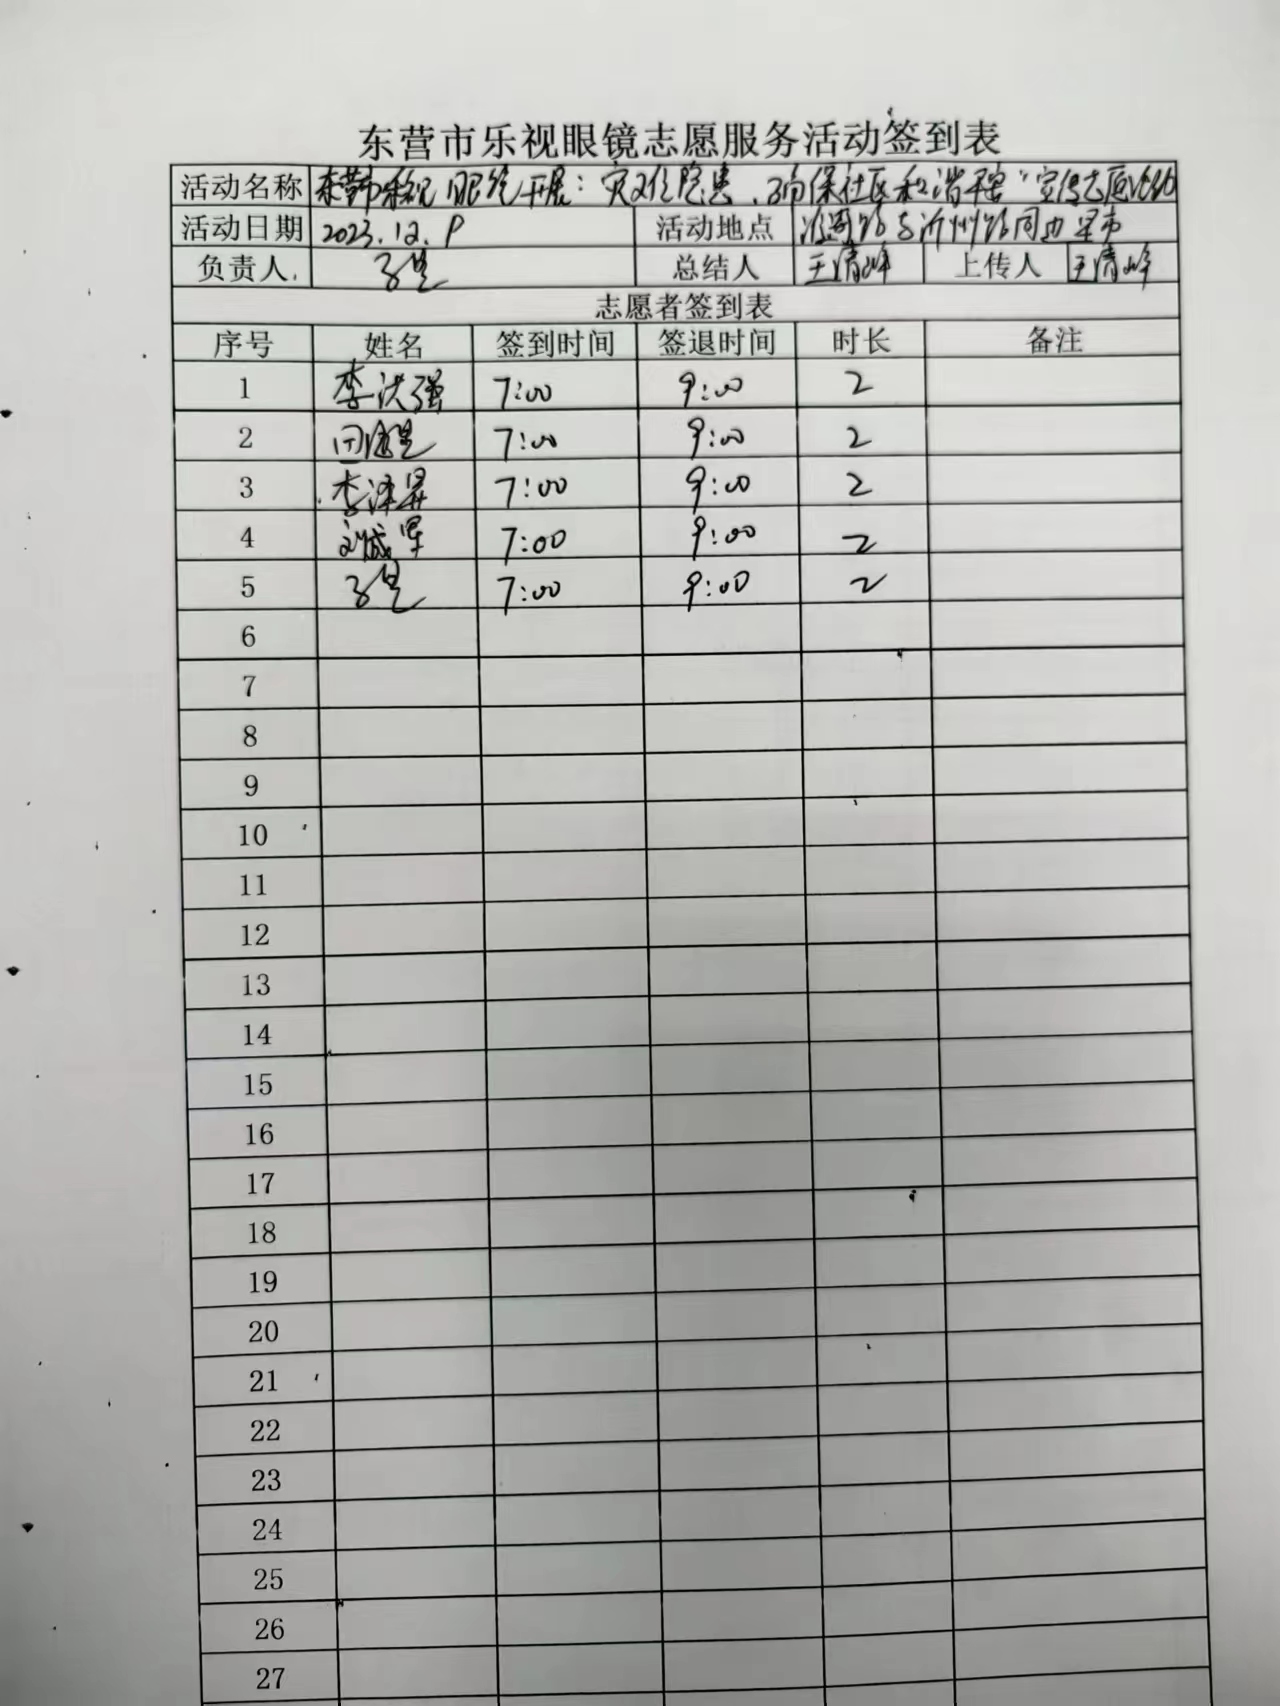 东营市乐视眼镜志愿服务活动签到表
活动名称 东营市乐视眼镜开展：灾 隐患，确保社区和谐平安"宣传志愿活动
活动日期 2023.12.9 活动地点 路与沂州路 市
负责人 总结人 王清峰 上传人 王清峰
志愿者签到表
序号 姓名 签到时间 签退时间 时长 备注
1 李洪强 7:00 9:00 2
2 田 7:00 9:00 2
3 李泽昇 7:00 9:00 2
4 刘成军 7:00 9:00 2
5 7:00 9:00 2
6
7
8
9
10
11
12
13
14
15
16
17
18
19
20
21
22
23
24
25
26
27